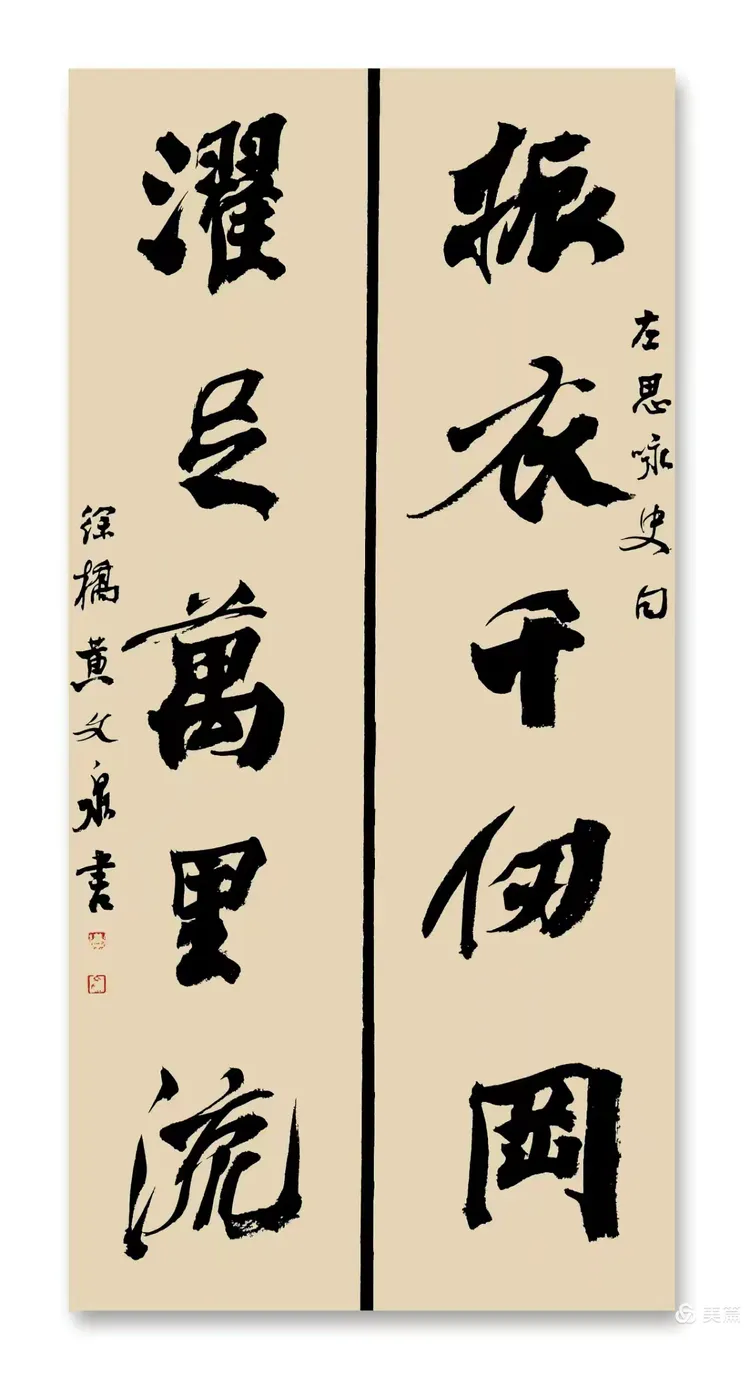 振衣千仞岡
左思咏史句
濯足萬里流
徐橋黄文泉書
美篇